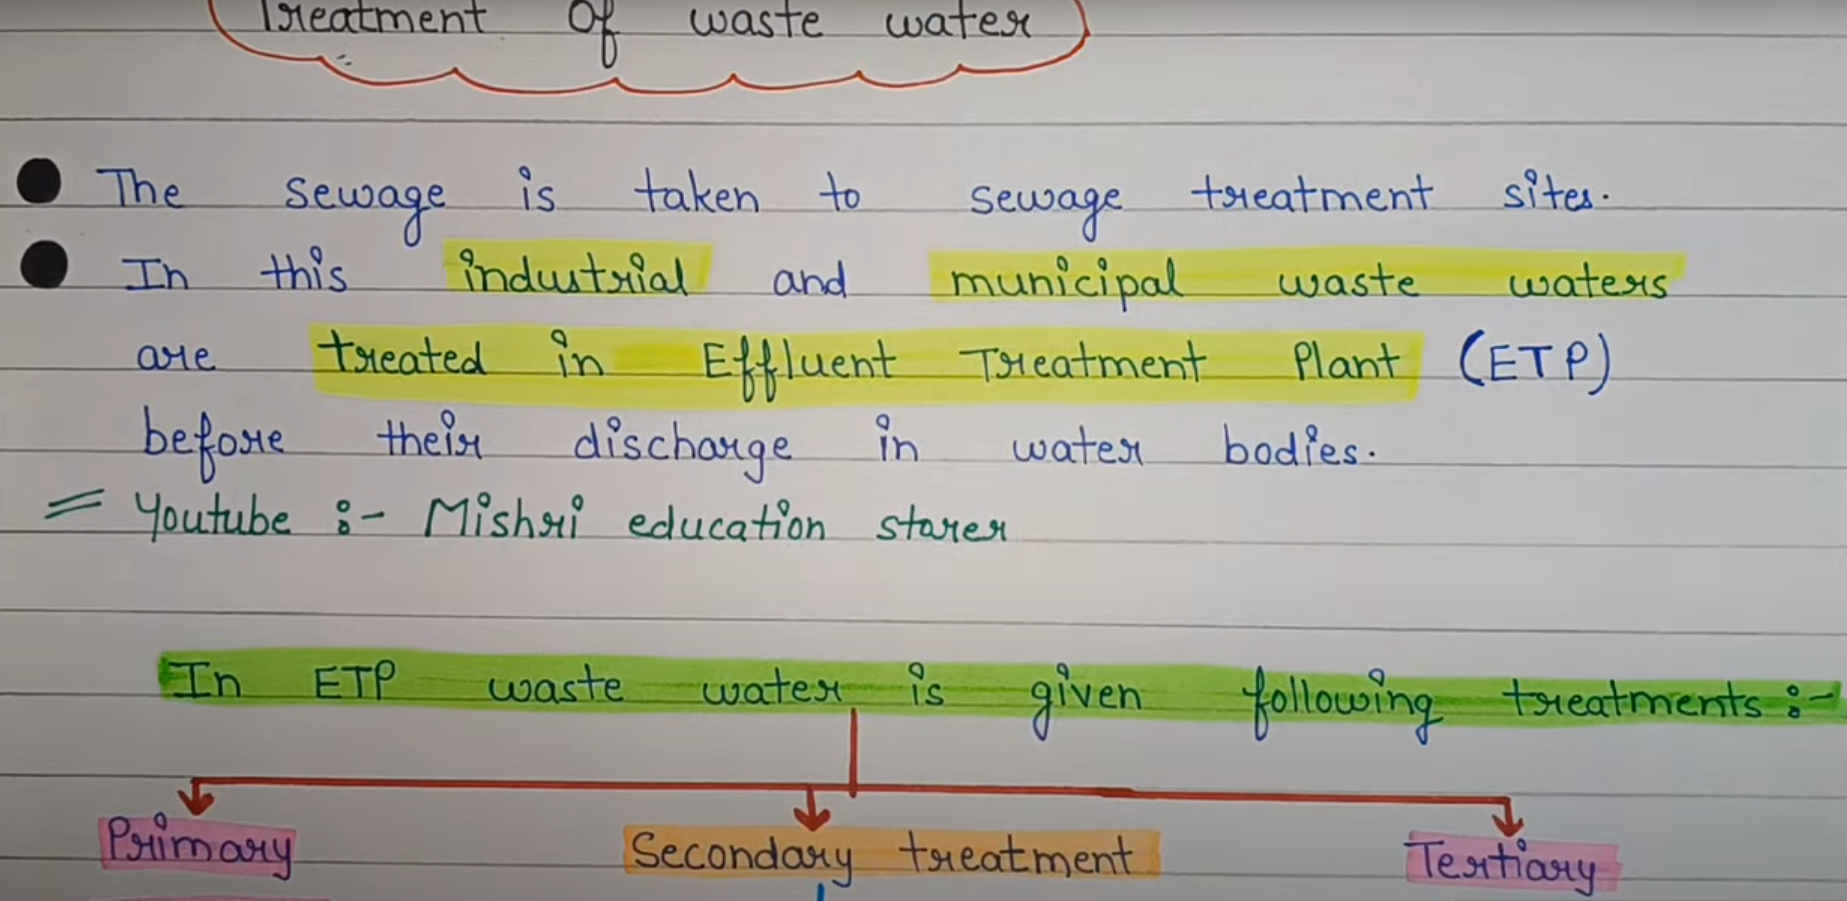 Treatment Of waste water
The sewage is taken to sewage treatment sites.
In this industrial and municipal waste waters
are treated in Effluent Treatment Plant (ETP)
before their discharge in water bodies.
= Youtube :- Mishri education starer
In ETP waste water is given following treatments :-
Primary Secondary treatment Tertiary